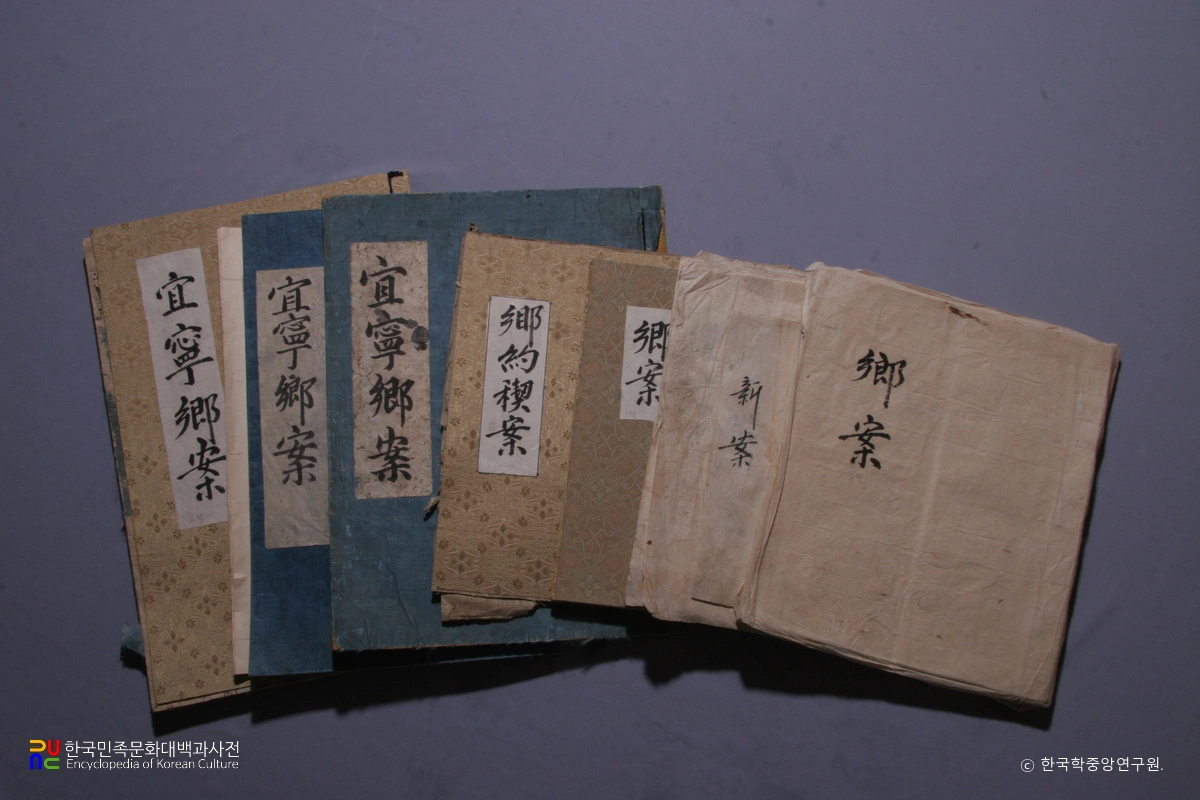 宜寧鄉案
宜寧鄉案
宜寧鄉案
鄉約稧案
鄉案
新案
鄉案
한국민족문화대백과사전
Encyclopedia of Korean Culture
ⓒ 한국학중앙연구원.